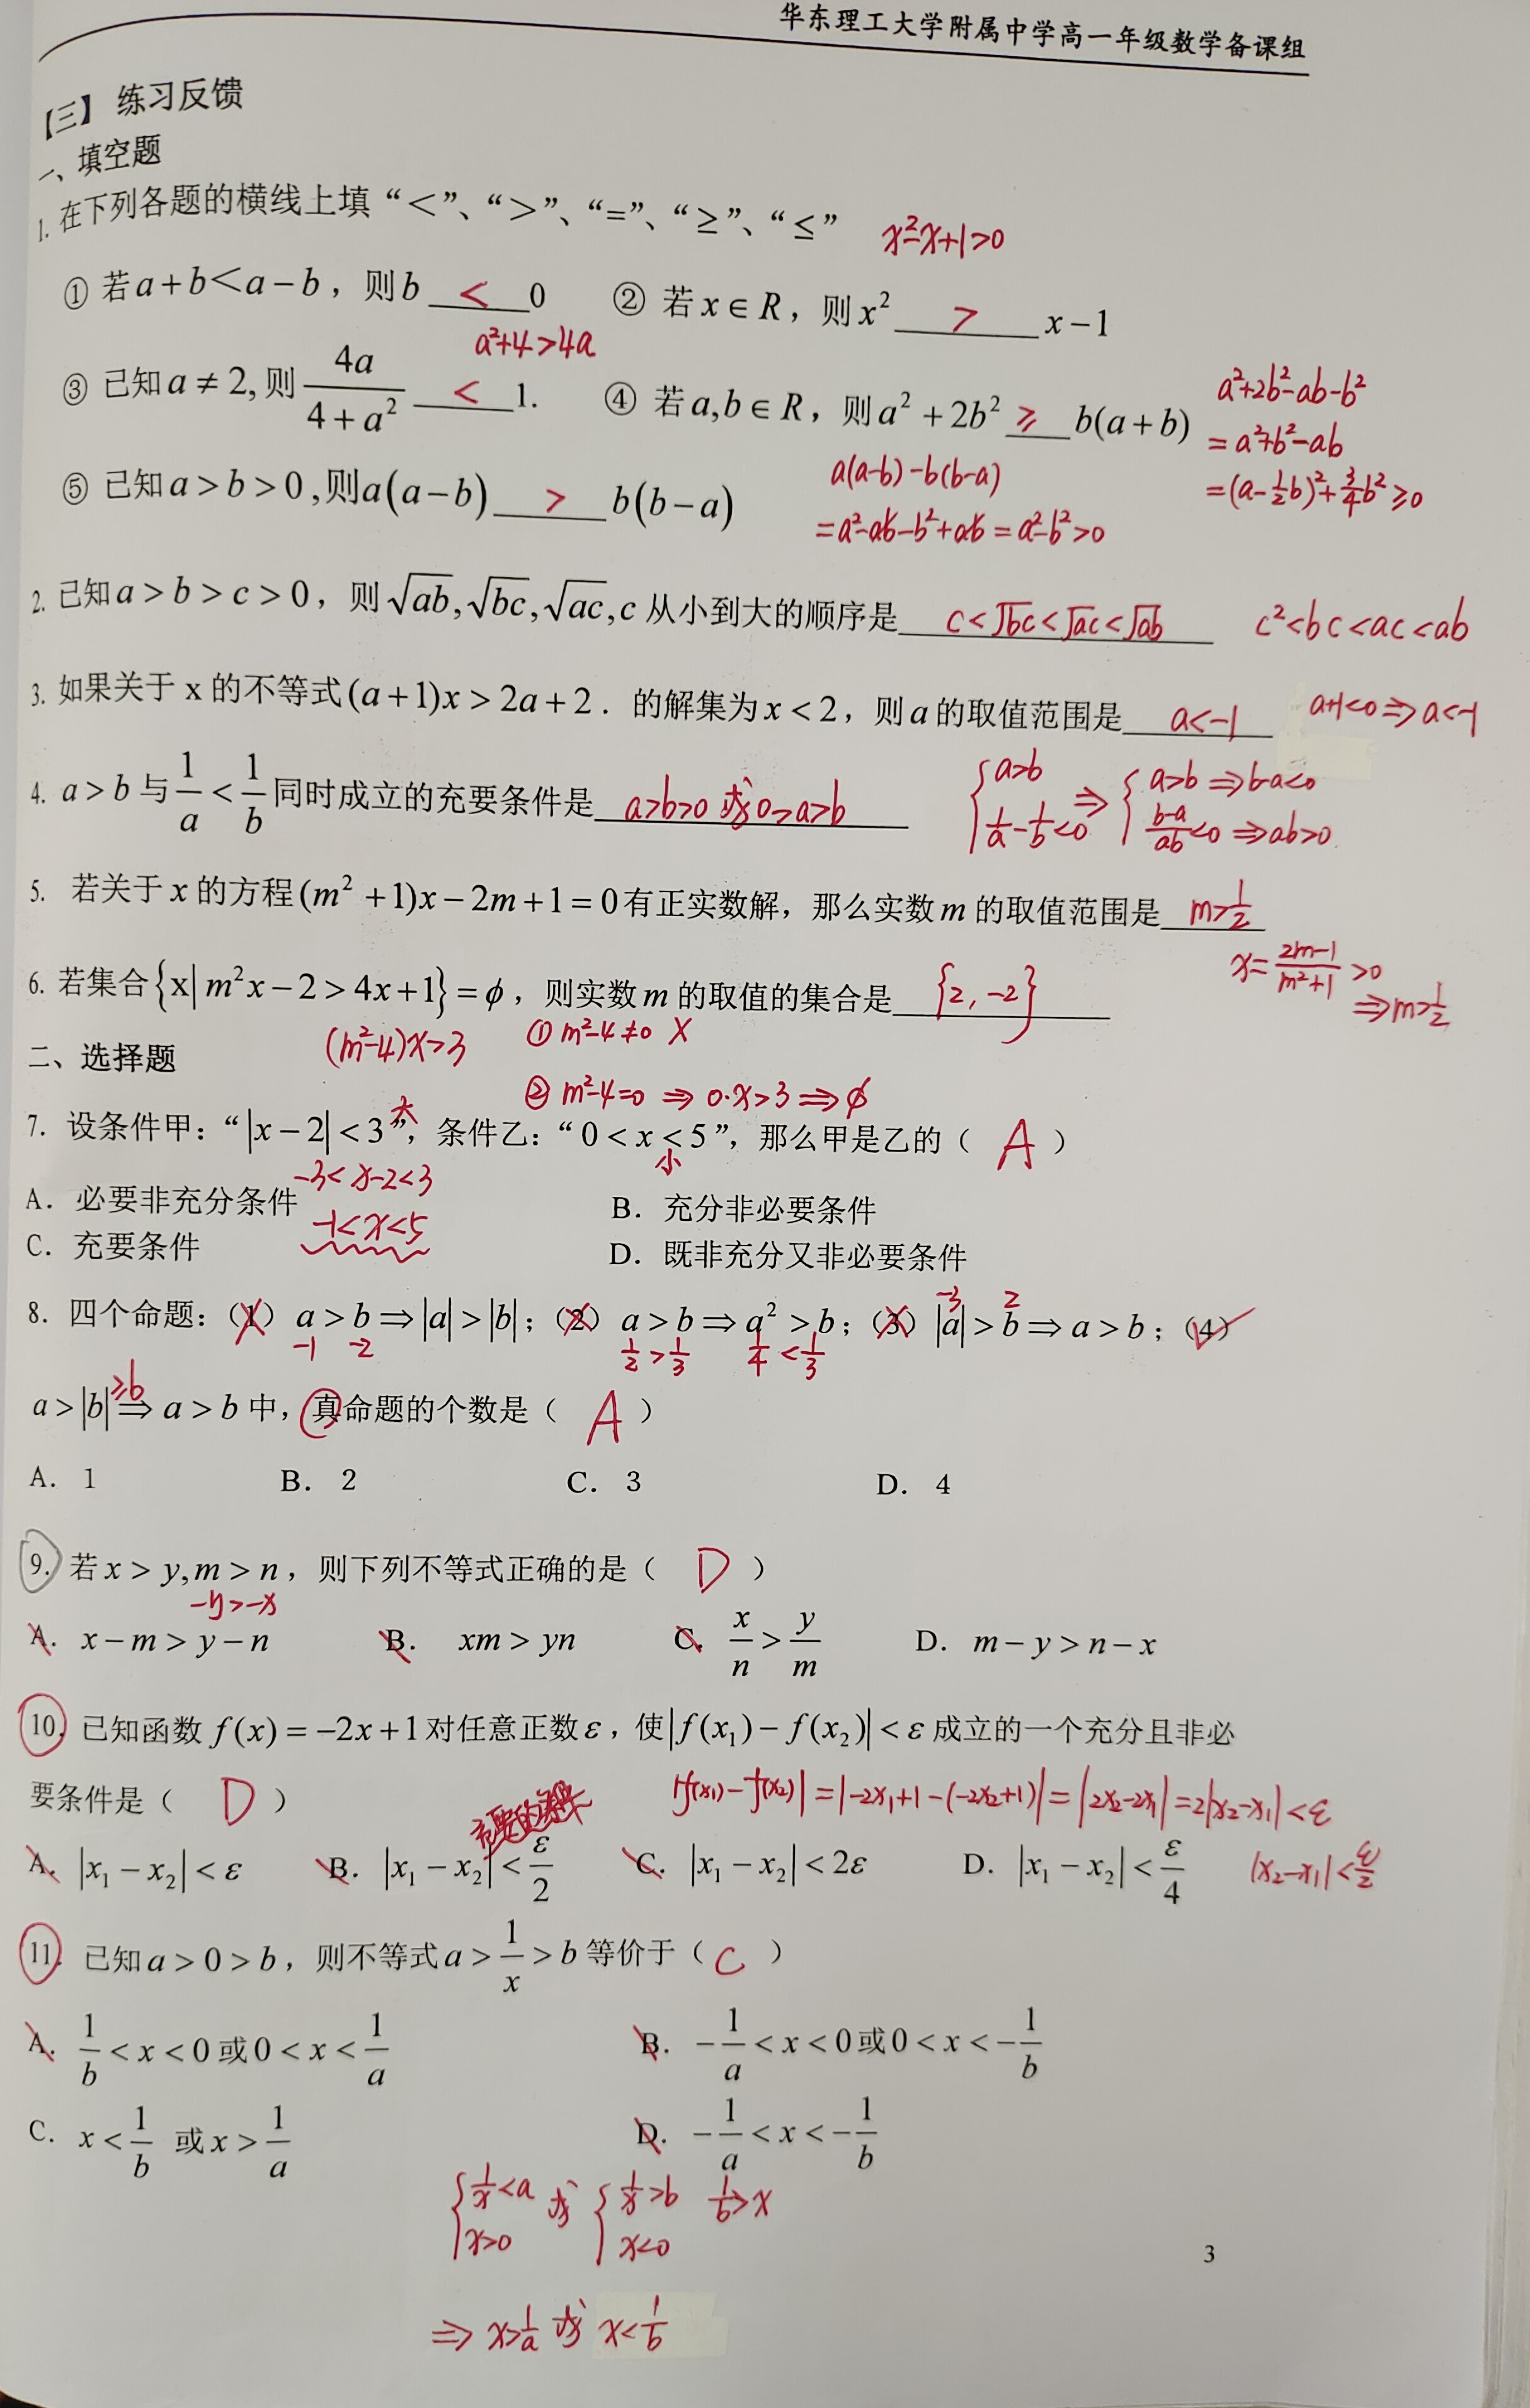 华东理工大学附属中学高一年级数学备课组
【三】 练习反馈
一、填空题
1. 在下列各题的横线上填“<”、“>”、“=”、“≥”、“≤”
x²-x+1>0
① 若a+b<a-b，则b < 0 ② 若x∈R，则x² > x-1
a²+4>4a
③ 已知a≠2,则 4a/(4+a²) < 1. ④ 若a,b∈R，则a²+2b² ≥ b(a+b)
a²+2b²-ab-b²
=a²+b²-ab
=(a-1/2b)²+3/4b²≥0
⑤ 已知a>b>0,则a(a-b) > b(b-a)
a(a-b)-b(b-a)
=a²-ab-b²+ab=a²-b²>0
2. 已知a>b>c>0，则√ab,√bc,√ac,c从小到大的顺序是 c<√bc<√ac<√ab
c²<bc<ac<ab
3. 如果关于x的不等式(a+1)x>2a+2．的解集为x<2，则a的取值范围是 a<-1
a+1<0⇒a<-1
4. a>b与1/a<1/b同时成立的充要条件是 a>b>0或0>a>b
{a>b ⇒ {a>b⇒b-a<0
1/a-1/b<0 (b-a)/ab<0⇒ab>0
5. 若关于x的方程(m²+1)x-2m+1=0有正实数解，那么实数m的取值范围是 m>1/2
x=(2m-1)/(m²+1)>0
⇒m>1/2
6. 若集合{x|m²x-2>4x+1}=φ，则实数m的取值的集合是 {2,-2}
(m²-4)x>3 ① m²-4≠0 X
② m²-4=0 ⇒ 0·x>3 ⇒ φ
二、选择题
大
7. 设条件甲：“|x-2|<3”，条件乙：“0<x<5”，那么甲是乙的（ A ）
小
-3<x-2<3
A．必要非充分条件 B．充分非必要条件
-1<x<5
C．充要条件 D．既非充分又非必要条件
-3 2
8. 四个命题：（1）a>b⇒|a|>|b|；（2）a>b⇒a²>b；（3）|a|>b⇒a>b；（4）
-1 -2 1/2>1/3 1/4<1/3
≥b
a>|b|⇒a>b中，真命题的个数是（ A ）
A． 1 B． 2 C． 3 D． 4
9. 若x>y,m>n，则下列不等式正确的是（ D ）
-y>-x
A. x-m>y-n B. xm>yn C. x/n>y/m D. m-y>n-x
10. 已知函数f(x)=-2x+1对任意正数ε，使|f(x₁)-f(x₂)|<ε成立的一个充分且非必
要条件是（ D ）
|f(x₁)-f(x₂)|=|-2x₁+1-(-2x₂+1)|=|2x₂-2x₁|=2|x₂-x₁|<ε
A. |x₁-x₂|<ε B. |x₁-x₂|<ε/2 C. |x₁-x₂|<2ε D. |x₁-x₂|<ε/4
|x₂-x₁|<ε/2
11. 已知a>0>b，则不等式a>1/x>b等价于（ C ）
A. 1/b<x<0或0<x<1/a B. -1/a<x<0或0<x<-1/b
C. x<1/b 或x>1/a D. -1/a<x<-1/b
{1/x<a 或 {1/x>b 1/b>x
x>0 x<0
3
⇒ x>1/a 或 x<1/b